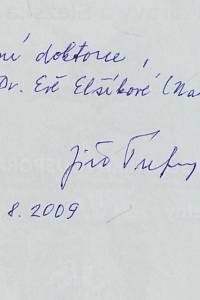 ní doktorce,
Dr. Evě Elšíkové (Na
Jiří
8. 2009